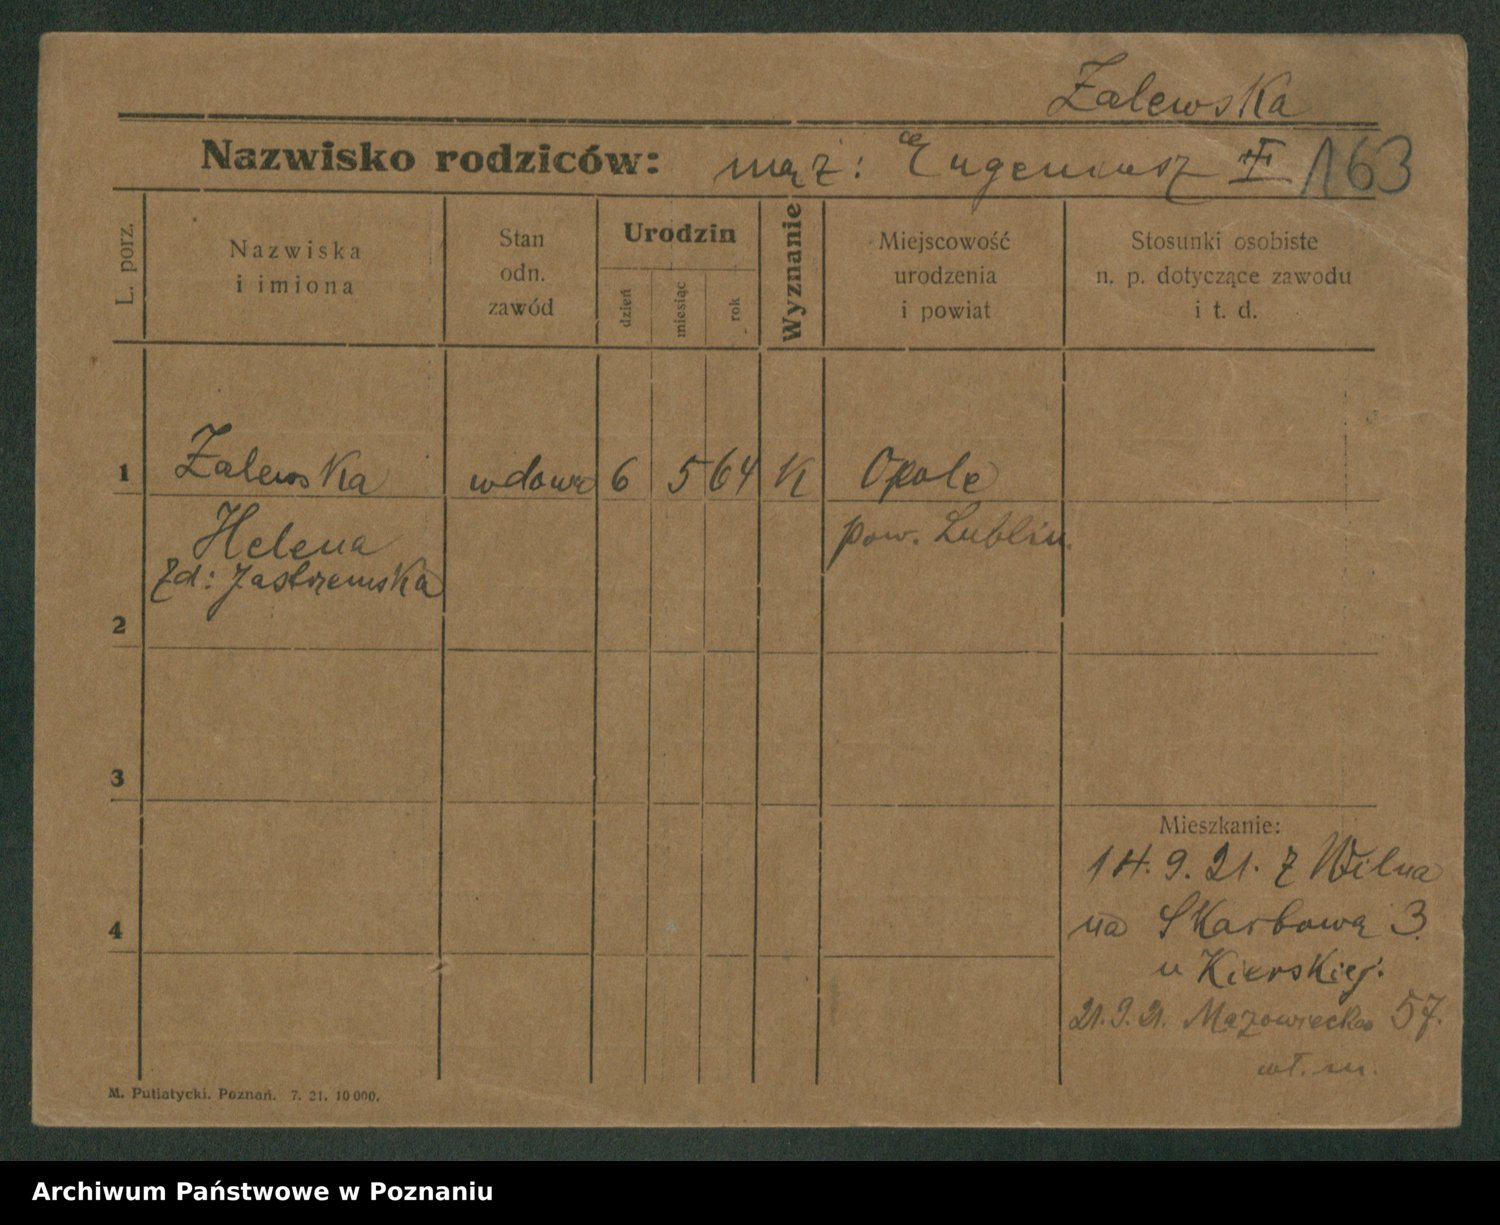 Zalewska
Nazwisko rodziców: mąż: Eugeniusz 163
L. porz.
Nazwiska
i imiona
Stan
odn.
zawód
Urodzin
dzień
miesiąc
rok
Wyznanie
Miejscowość
urodzenia
i powiat
Stosunki osobiste
n. p. dotyczące zawodu
i t. d.
1 Zalewska wdowa 6 5 64 K Opole
Helena pow. Lublin.
zd: Jastrzemska
2
3
Mieszkanie:
14. 9. 21. z Wilna
4 na Skarbową 3.
u Kierskiej.
21. 9. 21. Mazowiecka 57.
wł. m.
M. Putiatycki. Poznań. 7. 21. 10 000.
Archiwum Państwowe w Poznaniu